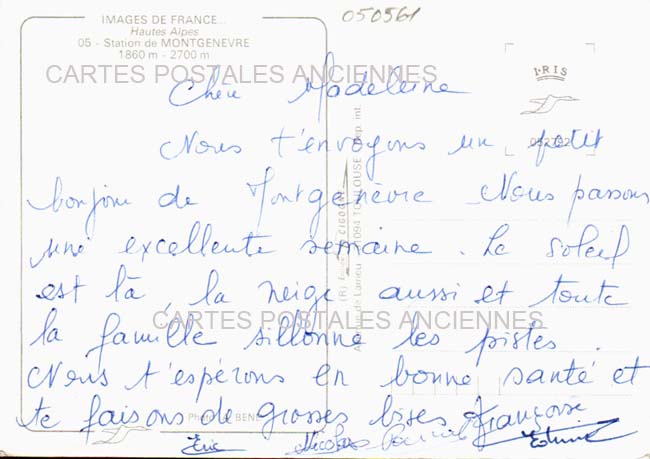 050561
IMAGES DE FRANCE...
Hautes Alpes
05 - Station de MONTGENEVRE
1860 m - 2700 m
IRIS
CARTES POSTALES ANCIENNES
Chère Madeleine
Nous t'envoyons un petit
bonjour de Montgenèvre. Nous passons
une excellente semaine. Le soleil
est là, la neige aussi et toute
la famille sillonne les pistes.
CARTES POSTALES ANCIENNES
Nous t'espérons en bonne santé et
te faisons de grosses bises Françoise
Eric Nicolas Pascal